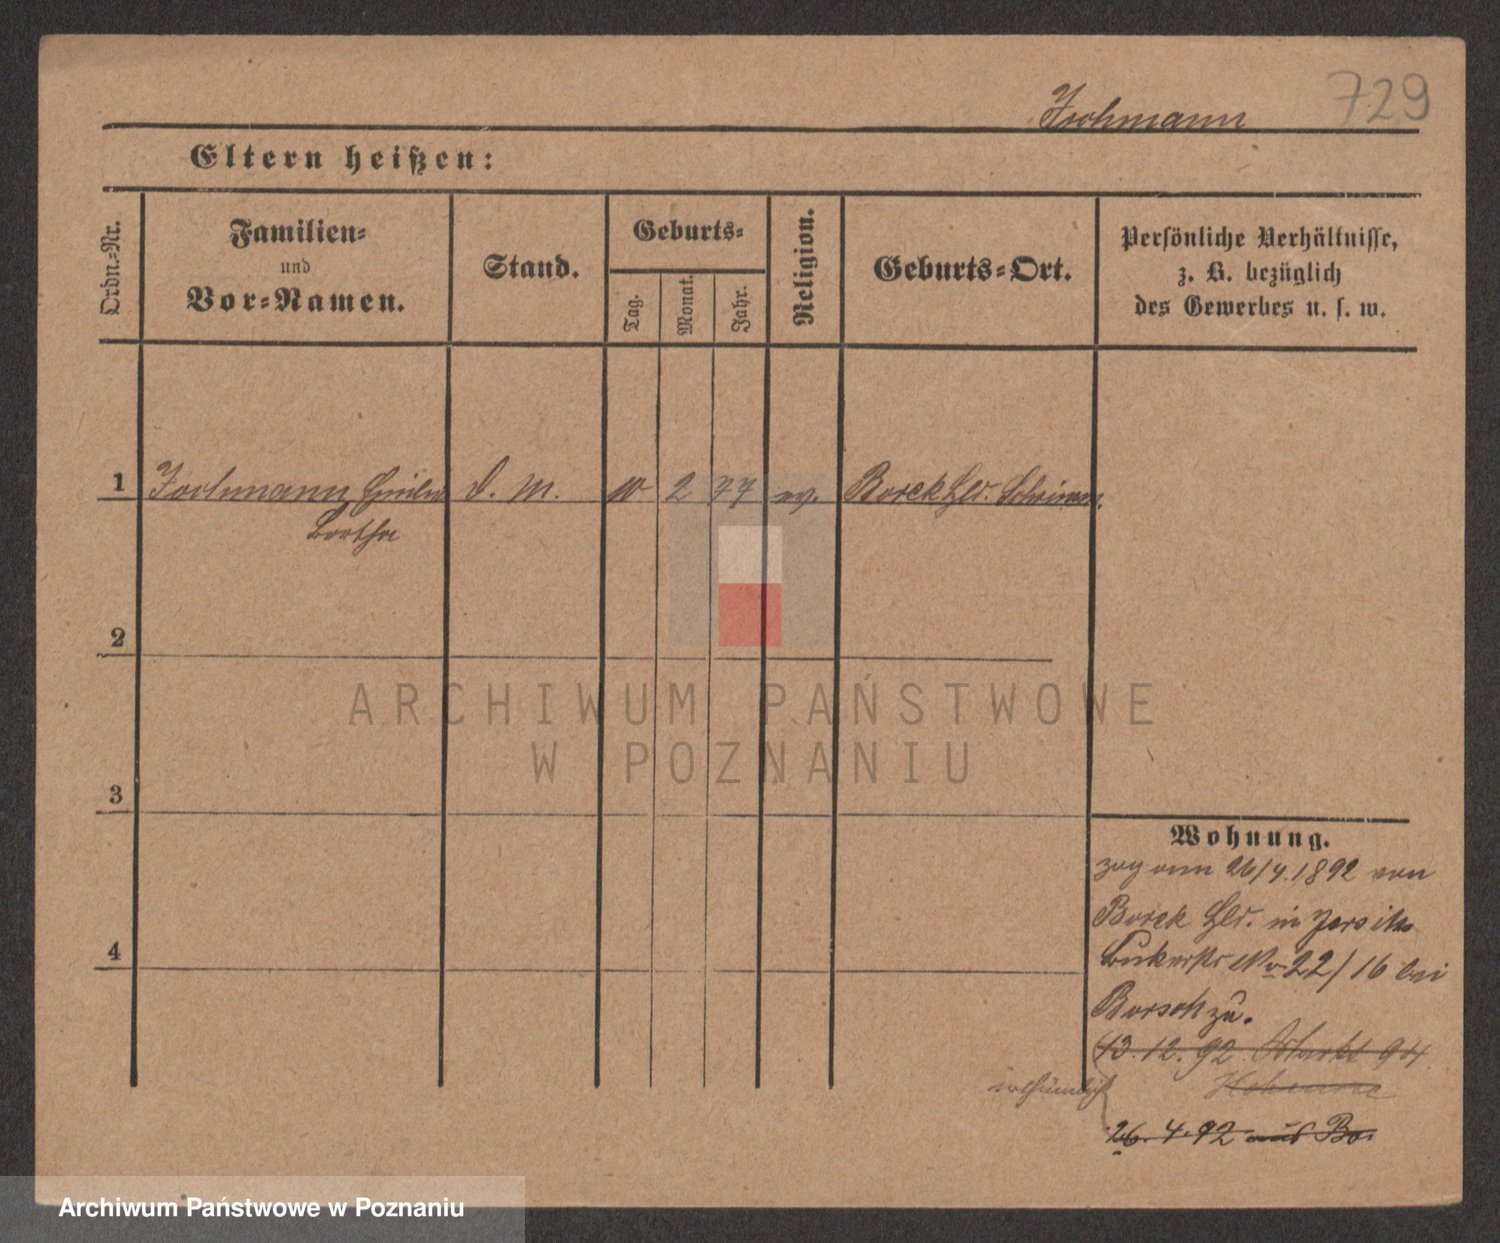 729
Jochmann
Eltern heißen:
Ordn.-Nr.
Familien-
und
Vor-Namen.
Stand.
Geburts-
Tag.
Monat.
Jahr.
Religion.
Geburts-Ort.
Persönliche Verhältnisse,
z. B. bezüglich
des Gewerbes u. s. w.
1 Jochmann Emilie d. M. 10 2 77 ev. Borek Hld. Schrimm
Bertha
2
3
4
ARCHIWUM PAŃSTWOWE
W POZNANIU
Wohnung.
zog am 26/4. 1892 von
Borek Hld. in Jersitz
No 22/16 bei
zu.
13. 12. 92. 94
irthümlich
26. 4. 92 aus Bo
Archiwum Państwowe w Poznaniu